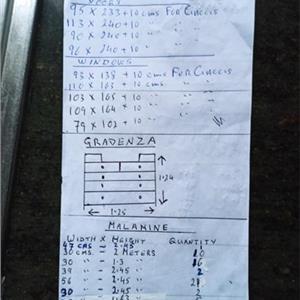 DOORS
95 X 233 + 10 CMS FOR CIRCLIS
113 X 240 + 10 " "
90 X 240 + 10 " "
96 X 240 + 10 "
WINDOWS
93 X 138 + 10 CMS FOR CIRCLIS
110 X 163 + 10 " "
103 X 165 + 10 " "
109 X 164 + 10 " "
79 X 102 + 10 "
GRADENZA
1·24
1·25
MALAMINE
WIDTH X HEIGHT QUANTITY
47 CMS - 2·45
30 CMS - 2 METERS 10
30 " - 1·3 " 16
39 " - 2·45 " 2
56 " - 2·45 "
30 " - 2·45 "